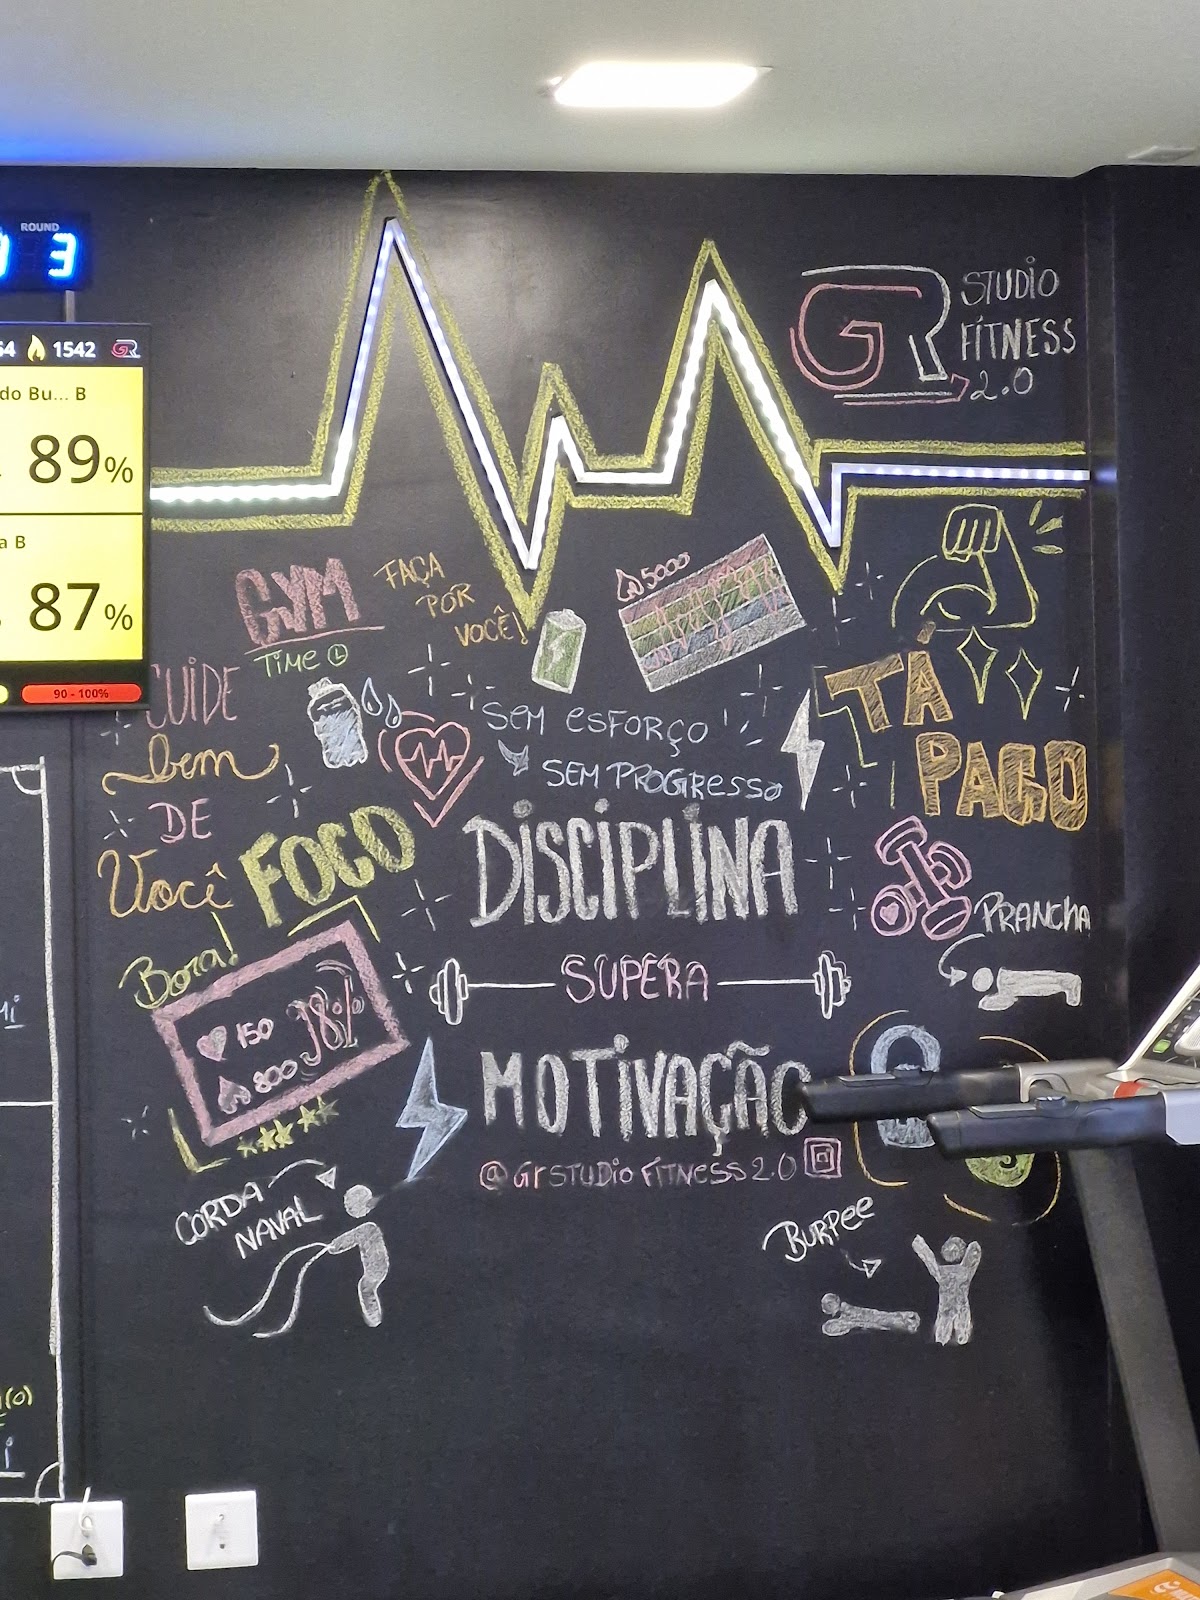 ROUND
3
1542 GR
do Bu... B
89%
a B
87%
90 - 100%
GR STUDIO
FÍTNESS
2.0
GYM
TIME
FAÇA
POR
VOCÊ!
5000
CUIDE
bem
DE
Você
SEM ESFORÇO
SEM PROGRESSO
TÁ
PAGO
FOCO
DISCIPLINA
SUPERA
MOTIVAÇÃO
@GRSTUDIOFÍTNESS2.0
Bora!
150
98%
800
PRANCHA
CORDA
NAVAL
BURPEE